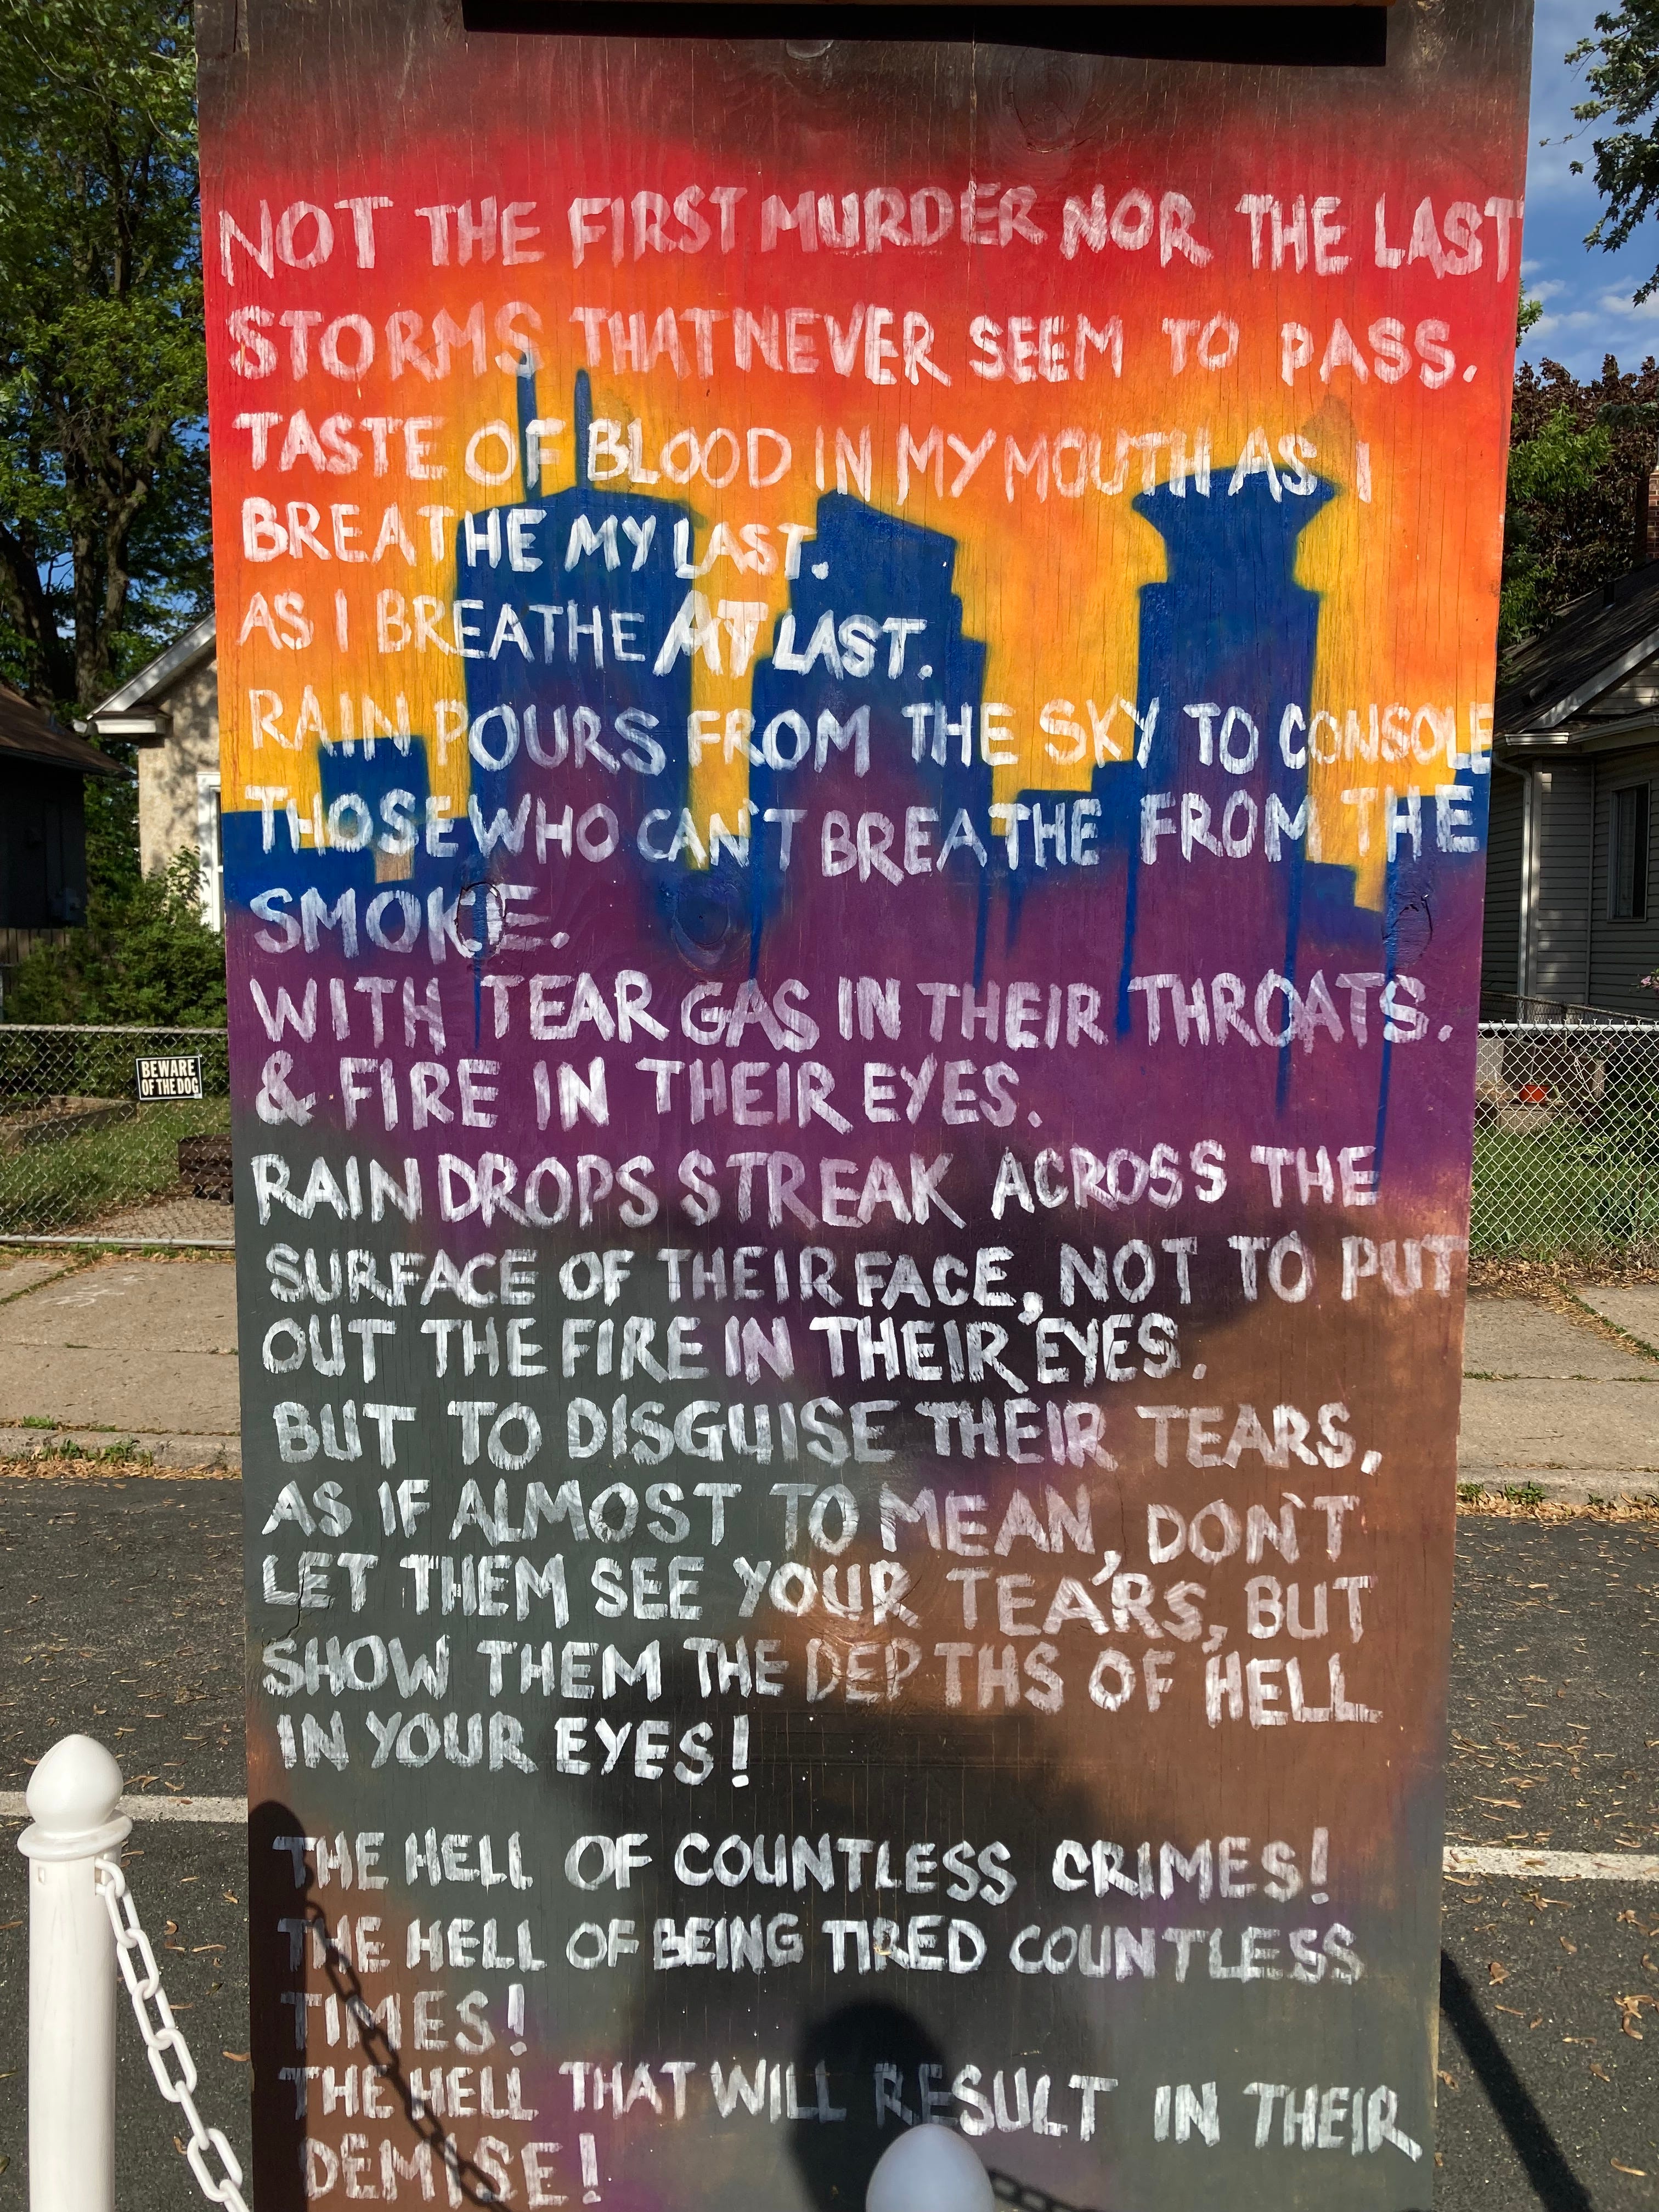 NOT THE FIRST MURDER NOR THE LAST
STORMS THAT NEVER SEEM TO PASS.
TASTE OF BLOOD IN MY MOUTH AS I
BREATHE MY LAST.
AS I BREATHE AT LAST.
RAIN POURS FROM THE SKY TO CONSOLE
THOSE WHO CAN'T BREATHE FROM THE
SMOKE.
WITH TEAR GAS IN THEIR THROATS.
& FIRE IN THEIR EYES.
RAIN DROPS STREAK ACROSS THE
SURFACE OF THEIR FACE, NOT TO PUT
OUT THE FIRE IN THEIR EYES.
BUT TO DISGUISE THEIR TEARS,
AS IF ALMOST TO MEAN, DON'T
LET THEM SEE YOUR TEARS, BUT
SHOW THEM THE DEPTHS OF HELL
IN YOUR EYES!
THE HELL OF COUNTLESS CRIMES!
THE HELL OF BEING TIRED COUNTLESS
TIMES!
THE HELL THAT WILL RESULT IN THEIR
DEMISE!
BEWARE
OF THE DOG